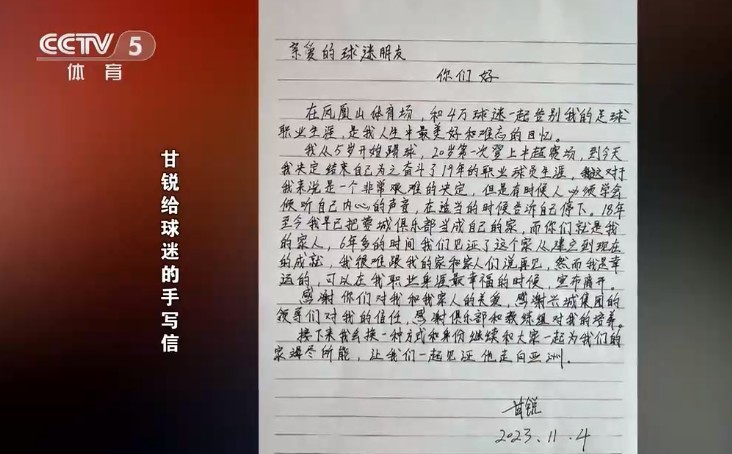 CCTV 5
体育
甘锐给球迷的手写信
亲爱的球迷朋友
你们好
在凤凰山体育场，和4万球迷一起告别我的足球
职业生涯，是我人生中最美好和难忘的回忆。
我从5岁开始踢球，20岁第一次登上中超赛场，到今天
我决定结束自己为之奋斗了19年的职业球员生涯，这对于
我来说是一个非常艰难的决定，但是有时候人必须学会
倾听自己内心的声音，在适当的时候告诉自己停下。18年
至今我早已把蓉城俱乐部当成自己的家，而你们就是我
的家人，6年多的时间我们见证了这个家从建立到现在
的成就，我很难跟我的家和家人们说再见，然而我是幸
运的，可以在我职业生涯最幸福的时候，宣布离开。
感谢你们对我和我家人的关爱，感谢兴城集团的
领导们对我的信任，感谢俱乐部和教练组对我的培养。
接下来我会换一种方式和身份继续和大家一起为我们的
家竭尽所能，让我们一起见证他走向亚洲。
甘锐
2023.11.4